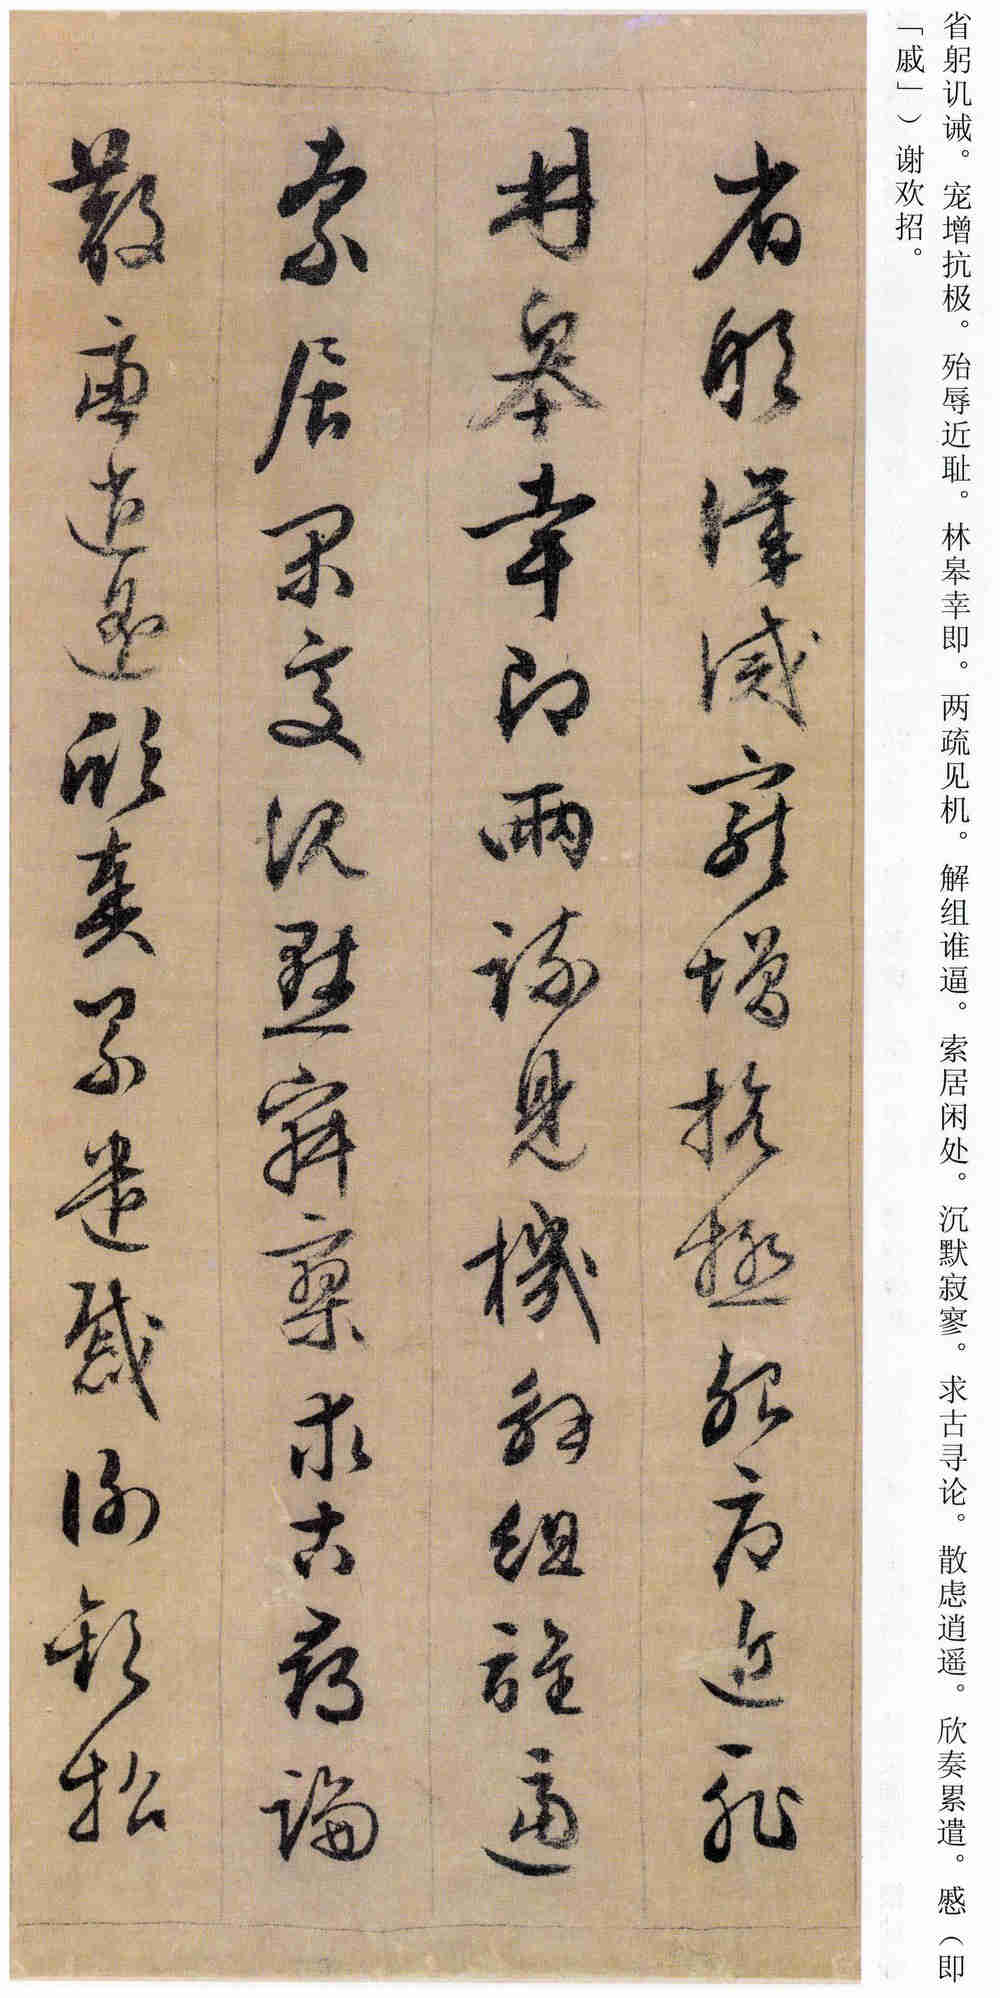 省躬讥诫。宠增抗极。殆辱近耻。林皋幸即。两疏见机。解组谁逼。索居闲处。沉默寂寥。求古寻论。散虑逍遥。欣奏累遣。慼（即
「戚」）谢欢招。
省躬譏誡寵增抗極殆辱近耻
林皋幸即兩疏見機解組誰逼
索居閑處沉默寂寥求古尋論
散慮逍遥欣奏累遣慼謝歡招